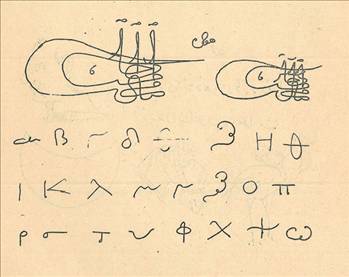 6 6
α β γ δ ζ H θ
ι κ λ μ ν ξ ο π
ρ σ τ υ φ χ ψ ω